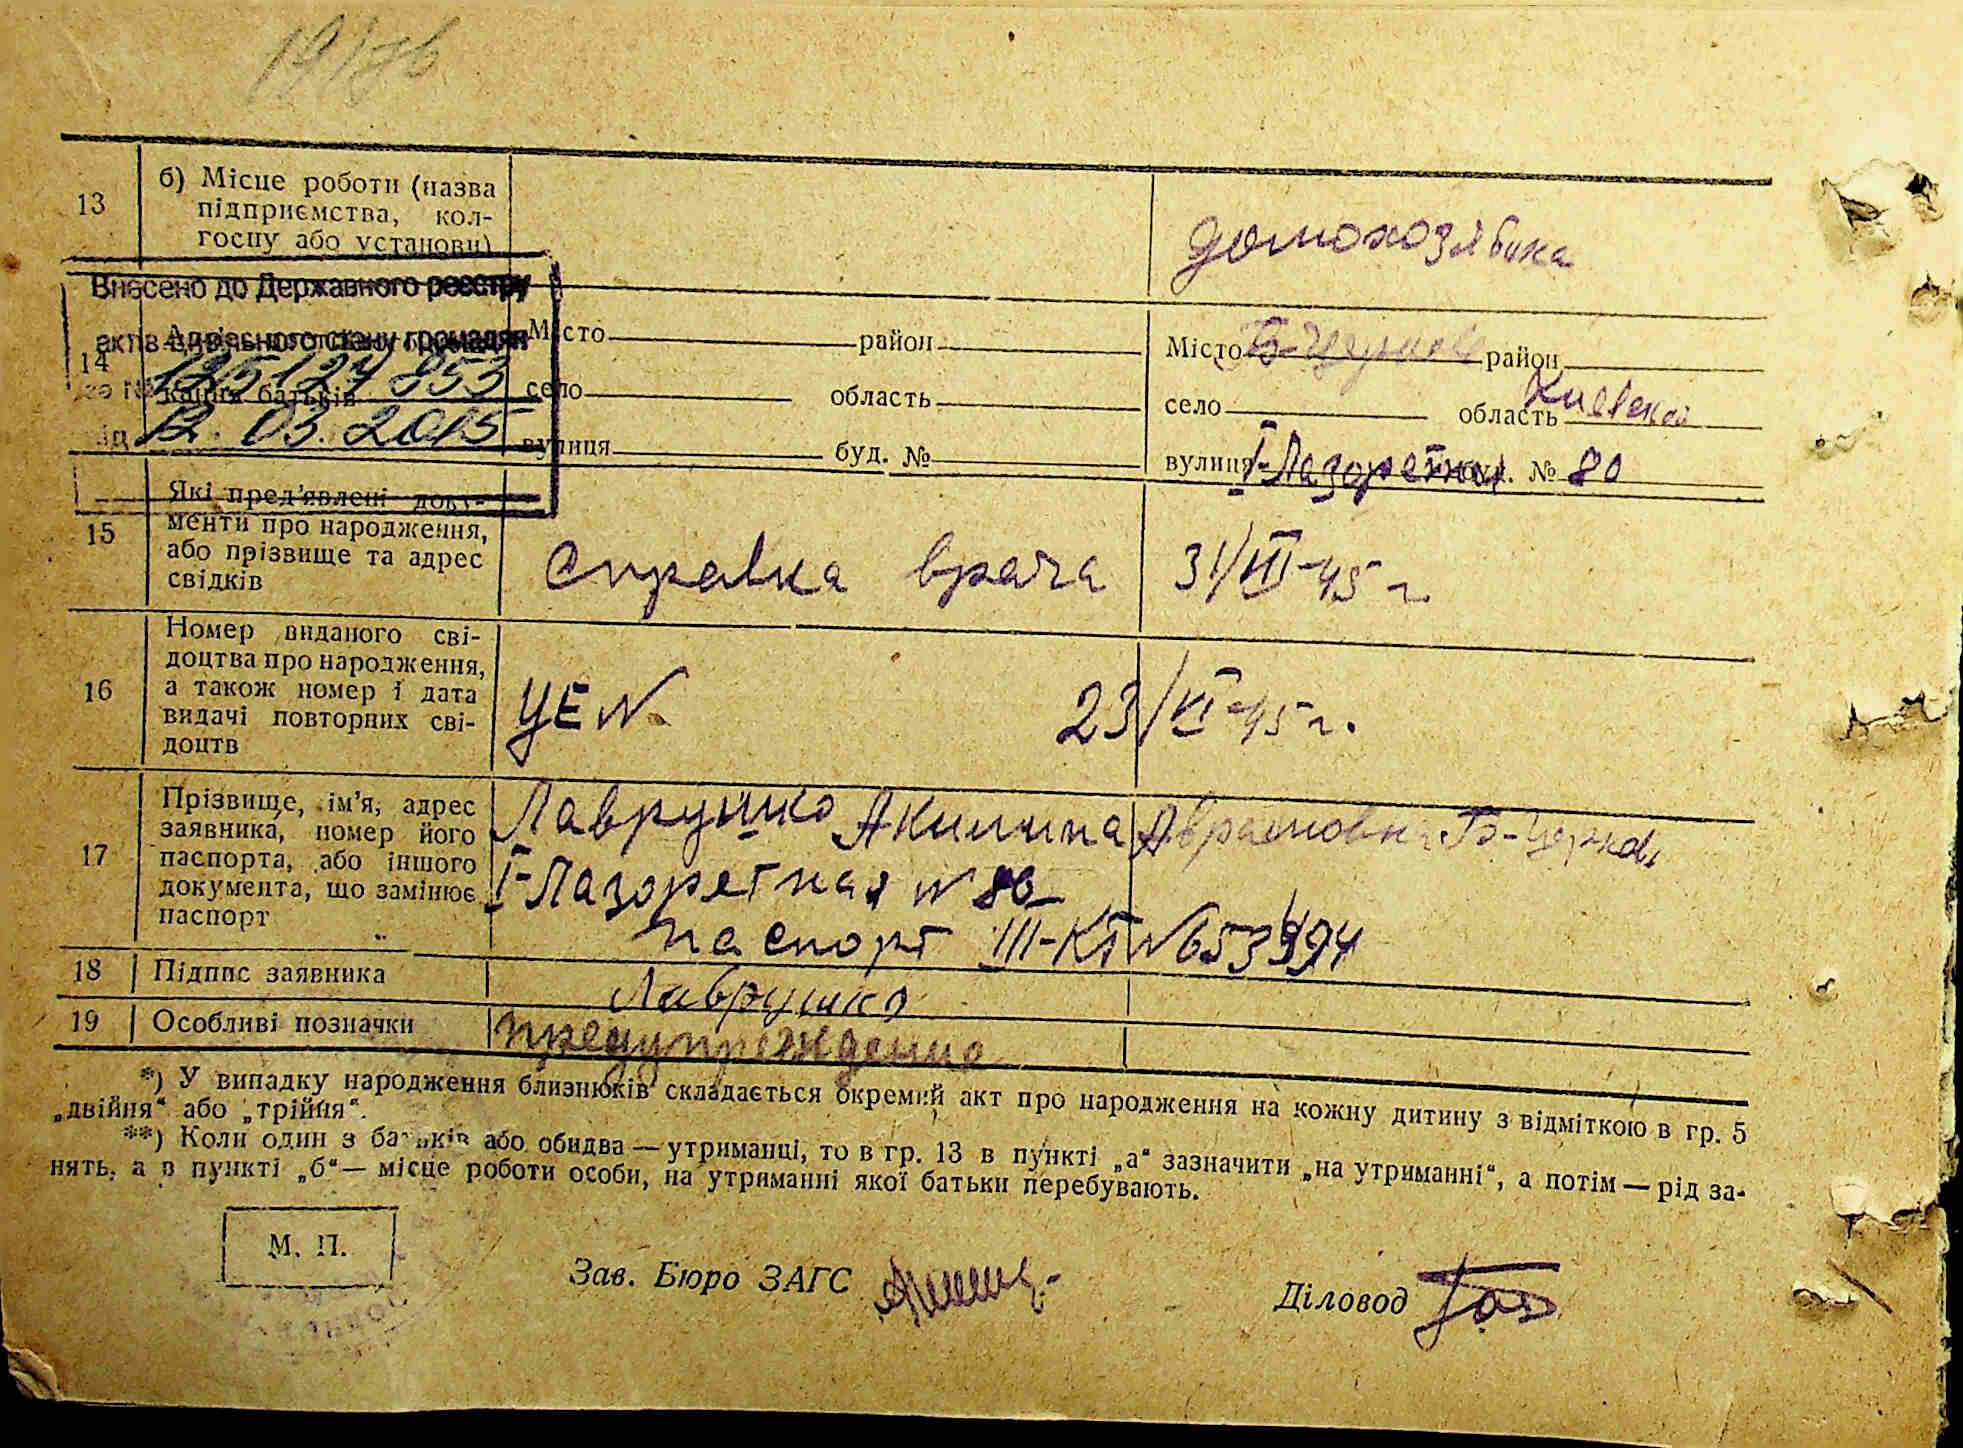 13
б) Місце роботи (назва
підприємства, кол-
госпу або установи)
домохозяйка
Внесено до Державного реєстру
актів цивільного стану громадян
за № 125127 853
від 12. 03. 2015
14
кання батьків
Місто район
село область
вулиця буд. №
Місто Б-Церковь район
село область Киевской
вулиця І-Лазоретная буд. № 80
15
Які пред'явлені доку-
менти про народження,
або прізвище та адрес
свідків
справка врача 31/VIII-45 г
16
Номер виданого сві-
доцтва про народження,
а також номер і дата
видачі повторних сві-
доцтв
УЕ № 23/XI-45 г.
17
Прізвище, ім'я, адрес
заявника, номер його
паспорта, або іншого
документа, що замінює
паспорт
Лаврушко Акилина Аврамовна Б-Церковь
І-Лазоретная № 80
паспорт III-КТ №
18
Підпис заявника
Лаврушко
19
Особливі позначки
предупреждена
*) У випадку народження близнюків складається окремий акт про народження на кожну дитину з відміткою в гр. 5
„двійня“ або „трійня“.
**) Коли один з батьків або обидва — утриманці, то в гр. 13 в пункті „а“ зазначити „на утриманні“, а потім — рід за-
нять, а в пункті „б“ — місце роботи особи, на утриманні якої батьки перебувають.
М. П.
Зав. Бюро ЗАГС
Діловод